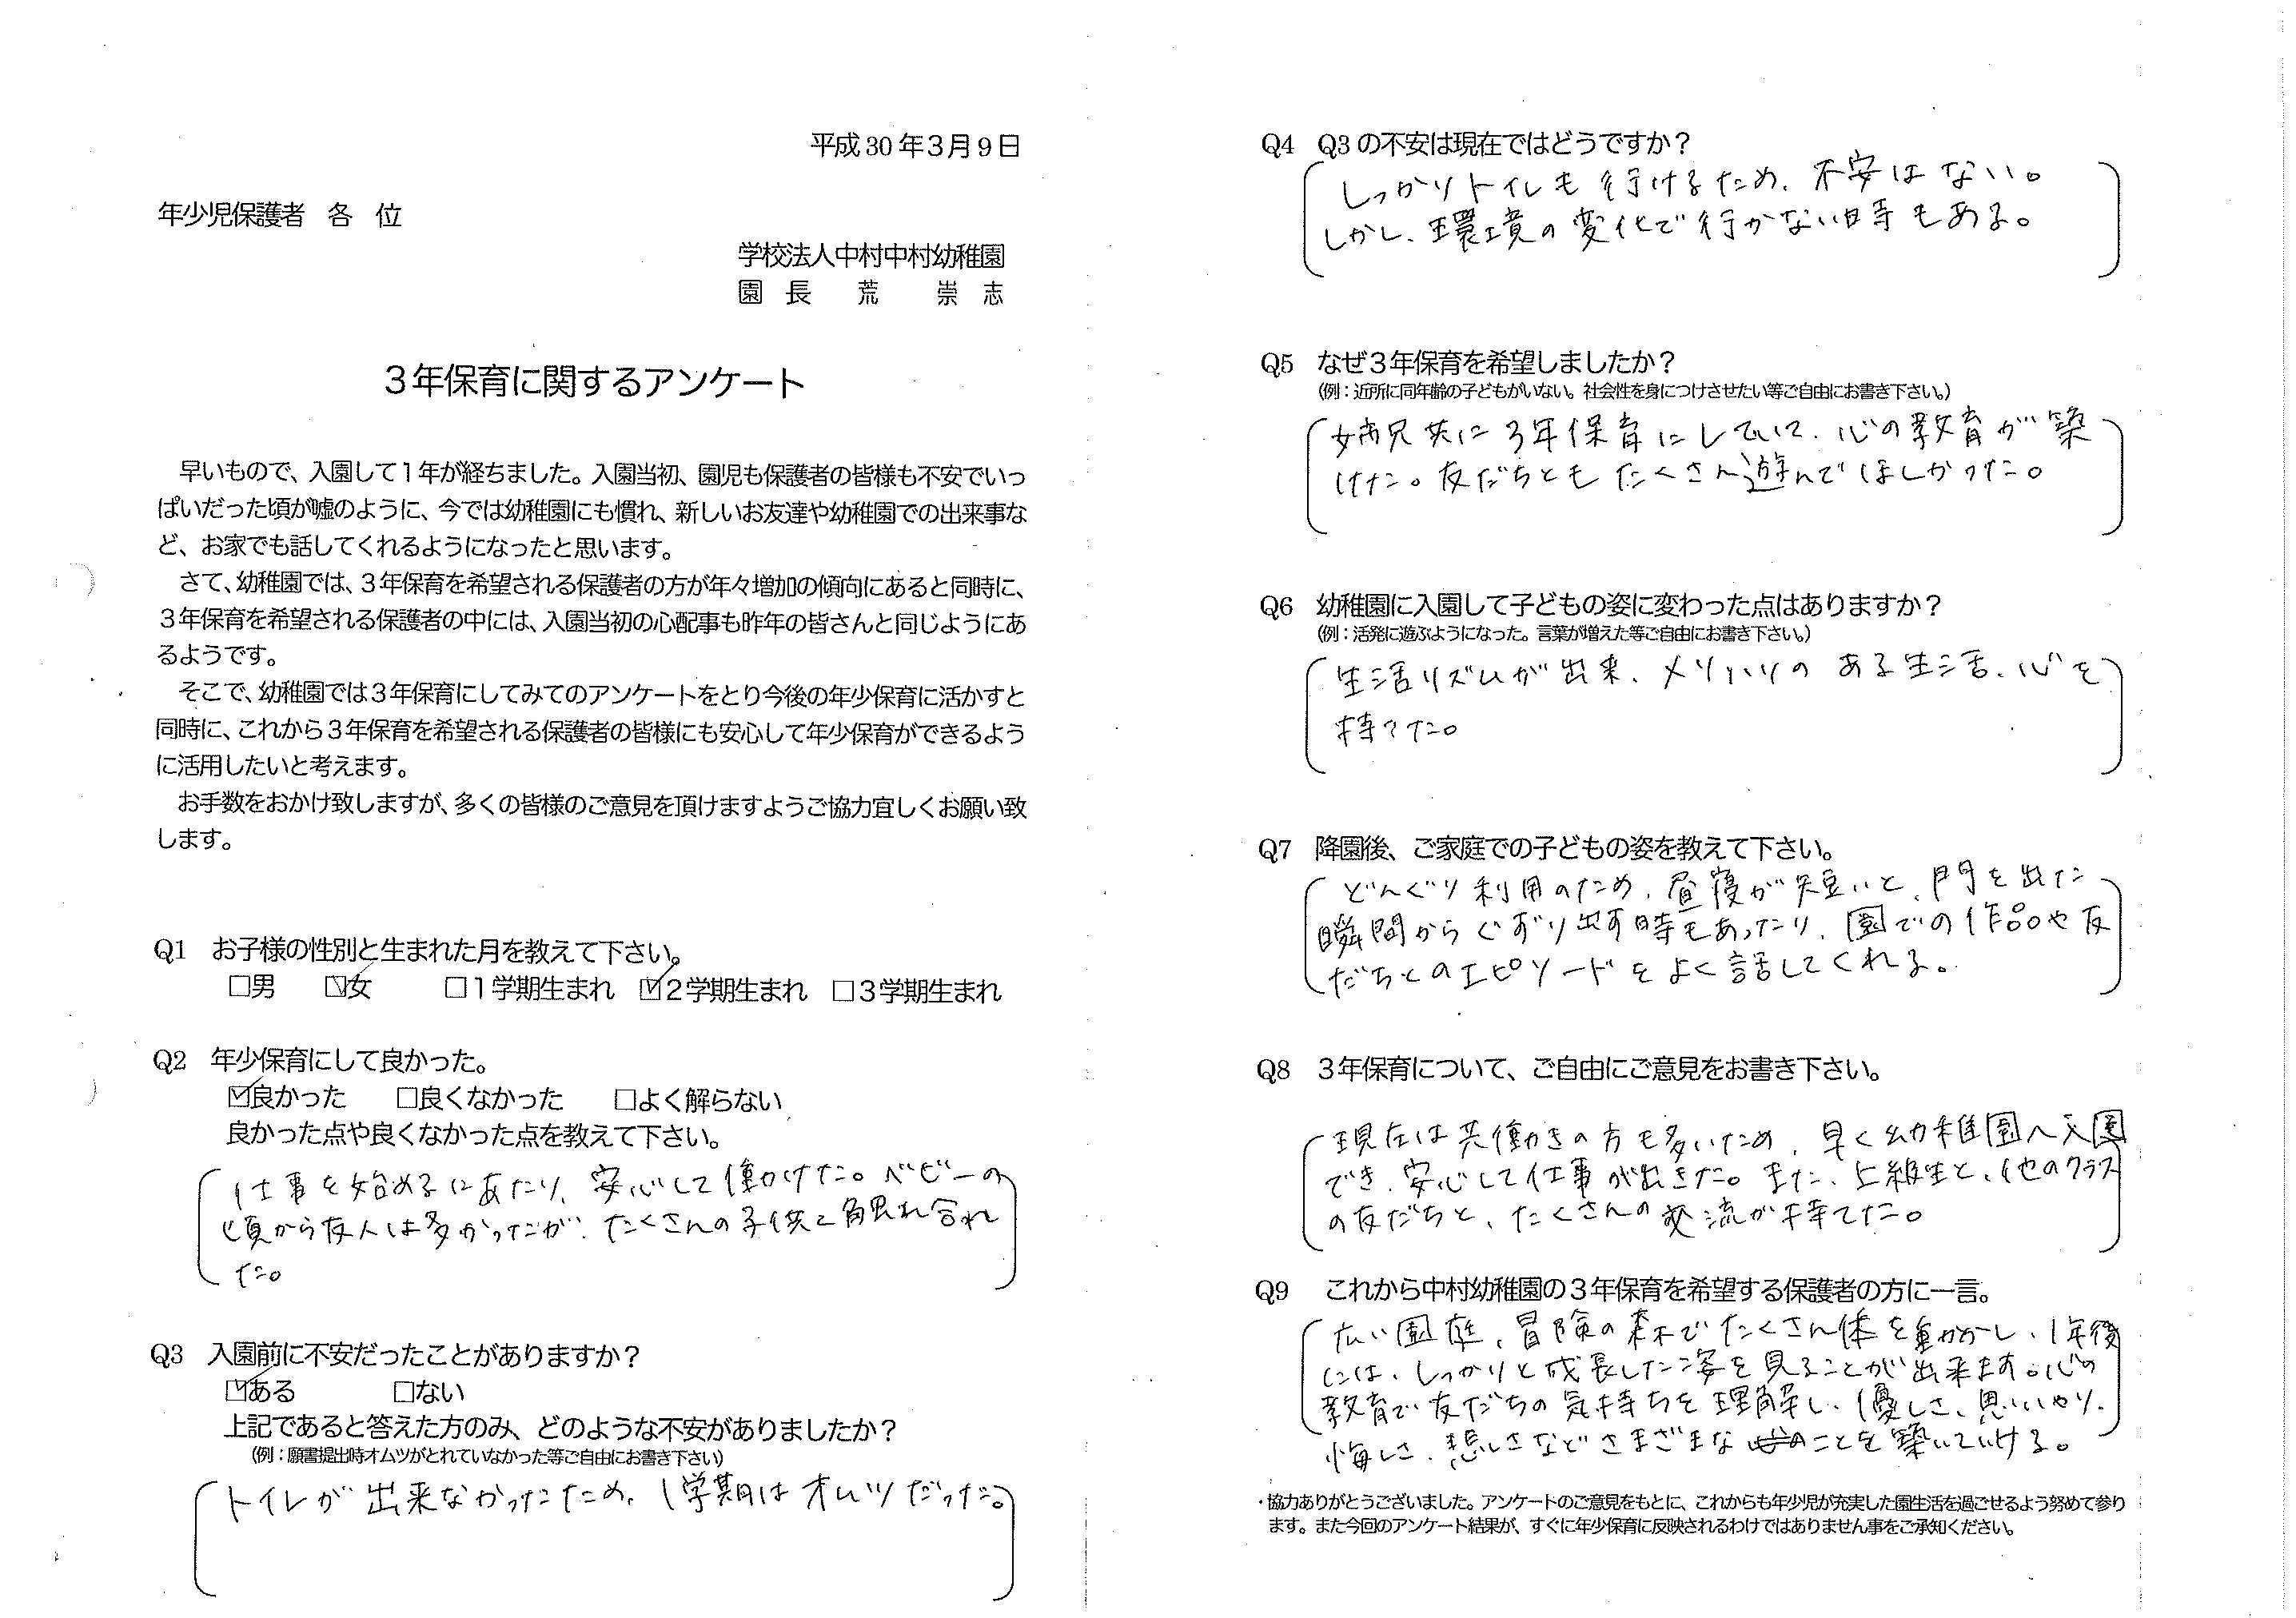 平成30年3月9日
年少児保護者 各 位
学校法人中村中村幼稚園
園 長 荒 崇 志
3年保育に関するアンケート
早いもので、入園して1年が経ちました。入園当初、園児も保護者の皆様も不安でいっ
ぱいだった頃が嘘のように、今では幼稚園にも慣れ、新しいお友達や幼稚園での出来事な
ど、お家でも話してくれるようになったと思います。
さて、幼稚園では、3年保育を希望される保護者の方が年々増加の傾向にあると同時に、
3年保育を希望される保護者の中には、入園当初の心配事も昨年の皆さんと同じようにあ
るようです。
そこで、幼稚園では3年保育にしてみてのアンケートをとり今後の年少保育に活かすと
同時に、これから3年保育を希望される保護者の皆様にも安心して年少保育ができるよう
に活用したいと考えます。
お手数をおかけ致しますが、多くの皆様のご意見を頂けますようご協力宜しくお願い致
します。
Q1 お子様の性別と生まれた月を教えて下さい。
□男 ☑女 □1学期生まれ ☑2学期生まれ □3学期生まれ
Q2 年少保育にして良かった。
☑良かった □良くなかった □よく解らない
良かった点や良くなかった点を教えて下さい。
仕事を始めるにあたり、安心して働けた。ベビーの
頃から友人は多かったが、たくさんの子供と触れ合れ
た。
Q3 入園前に不安だったことがありますか?
☑ある □ない
上記であると答えた方のみ、どのような不安がありましたか?
(例:願書提出時オムツがとれていなかった等ご自由にお書き下さい)
トイレが出来なかったため、1学期はオムツだった。
Q4 Q3の不安は現在ではどうですか?
しっかりトイレも行けるため、不安はない。
しかし、環境の変化で行かない時もある。
Q5 なぜ3年保育を希望しましたか?
(例:近所に同年齢の子どもがいない。社会性を身につけさせたい等ご自由にお書き下さい。)
姉兄共に3年保育にしていて、心の教育が築
けた。友だちともたくさん遊んでほしかった。
Q6 幼稚園に入園して子どもの姿に変わった点はありますか?
(例:活発に遊ぶようになった。言葉が増えた等ご自由にお書き下さい。)
生活リズムが出来、メリハリのある生活、心を
持てた。
Q7 降園後、ご家庭での子どもの姿を教えて下さい。
どんぐり利用のため、昼寝が短いと、門を出た
瞬間からぐずり出す時もあったり、園での作品や友
だちとのエピソードをよく話してくれる。
Q8 3年保育について、ご自由にご意見をお書き下さい。
現在は共働きの方も多いため、早く幼稚園へ入園
でき、安心して仕事が出きた。また、上級生と、他のクラス
の友だちと、たくさんの交流が持てた。
Q9 これから中村幼稚園の3年保育を希望する保護者の方に一言。
広い園庭、冒険の森でたくさん体を動かし、1年後
には、しっかりと成長した姿を見ることが出来ます。心の
教育で友だちの気持ちを理解し、優しさ、思いやり、
悔しさ、悲しさなどさまざまなことを築いていける。
・協力ありがとうございました。アンケートのご意見をもとに、これからも年少児が充実した園生活を過ごせるよう努めて参り
ます。また今回のアンケート結果が、すぐに年少保育に反映されるわけではありません事をご承知ください。